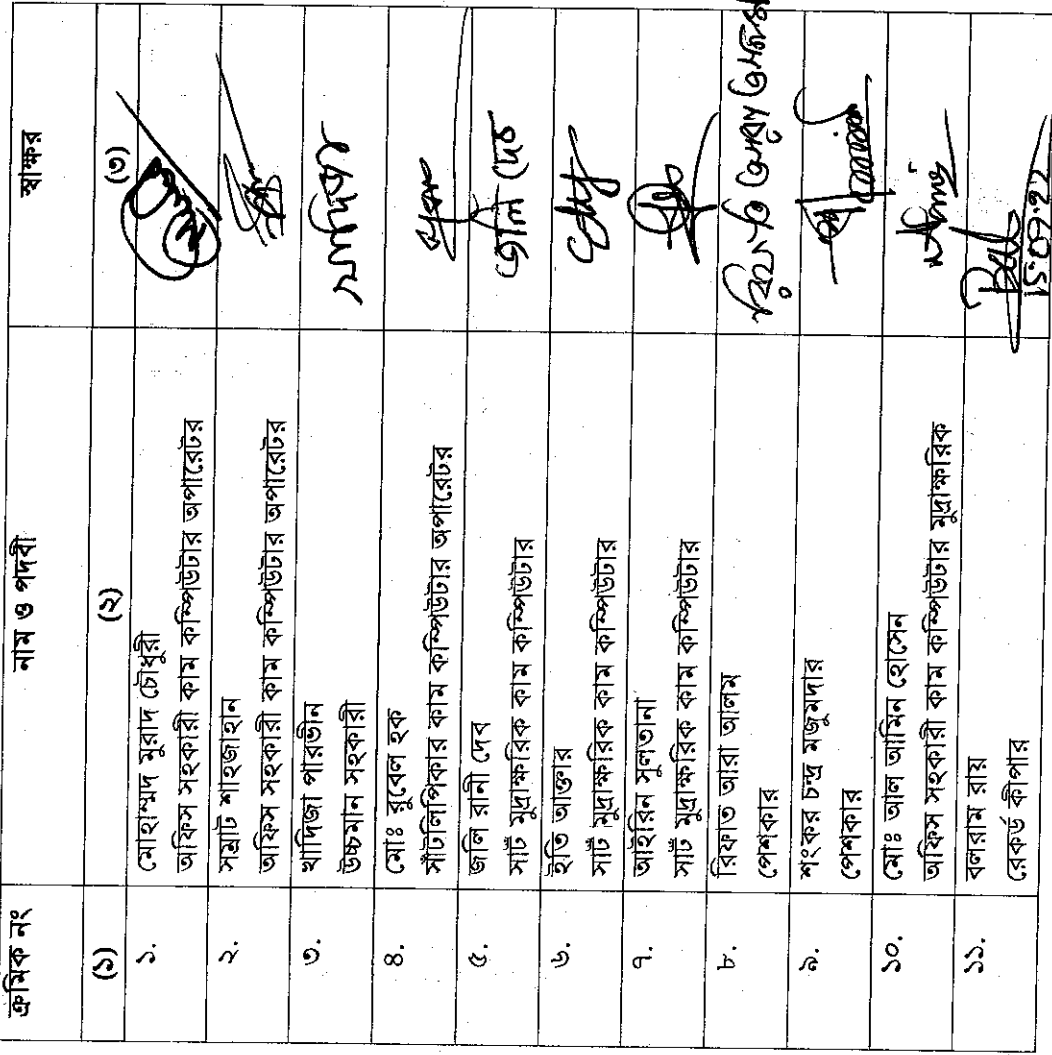 ক্রমিক নং নাম ও পদবী স্বাক্ষর
(১) (২) (৩)
১. মোহাম্মদ মুরাদ চৌধুরী
অফিস সহকারী কাম কম্পিউটার অপারেটর
২. সম্রাট শাহজাহান
অফিস সহকারী কাম কম্পিউটার অপারেটর
৩. খাদিজা পারভীন
উচ্চমান সহকারী
৪. মোঃ রুবেল হক
সাঁটলিপিকার কাম কম্পিউটার অপারেটর
৫. জলি রানী দেব জলি দেব
সাট মুদ্রাক্ষরিক কাম কম্পিউটার
৬. ইতি আক্তার
সাট মুদ্রাক্ষরিক কাম কম্পিউটার
৭. আইরিন সুলতানা
সাট মুদ্রাক্ষরিক কাম কম্পিউটার
৮. রিফাত আরা আলম
পেশকার
৯. শংকর চন্দ্র মজুমদার
পেশকার
১০. মোঃ আল আমিন হোসেন
অফিস সহকারী কাম কম্পিউটার মুদ্রাক্ষরিক
১১. বলরাম রায়
রেকর্ড কীপার 15.09.22